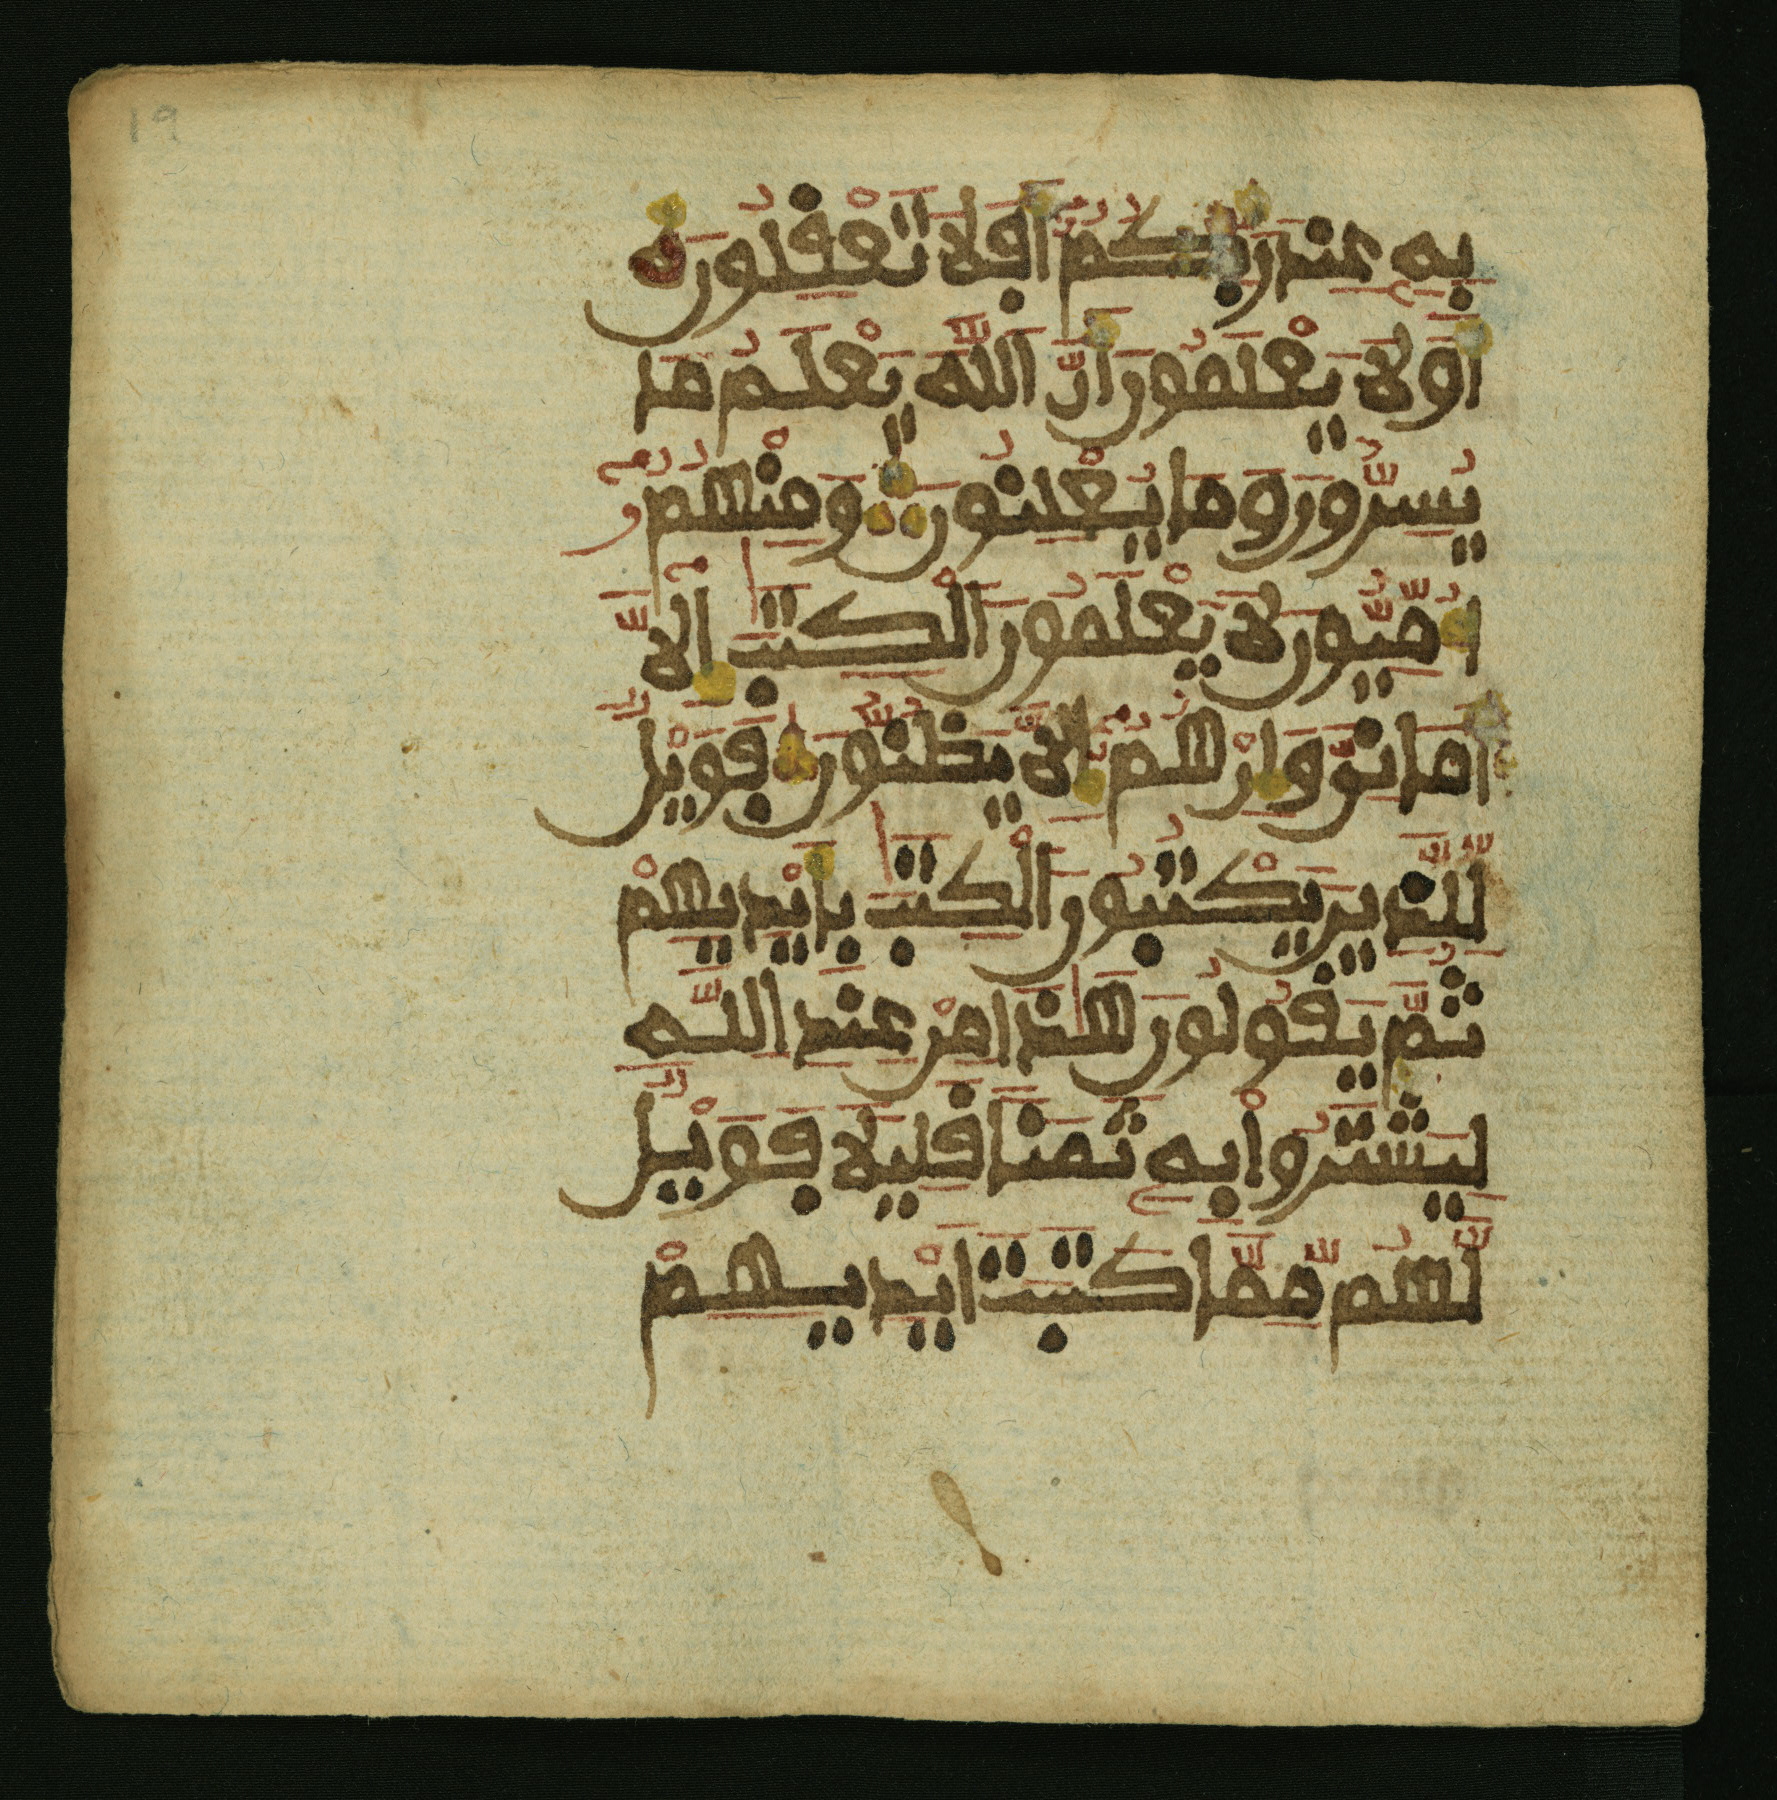 19
بِهِۦ عِندَ رَبِّكُمُۥٓ أَفَلَا تَعْقِلُونَ
أَوَلَا يَعْلَمُونَ أَنَّ اَللَّهَ يَعْلَمُ مَا
يُسِرُّونَ وَمَا يُعْلِنُونَ وَمِنْهُمُۥٓ
أُمِّيُّونَ لَا يَعْلَمُونَ اَلْكِتَٰبَ إِلَّآ
أَمَانِيَّ وَإِنْ هُمُۥٓ إِلَّا يَظُنُّونَ فَوَيْلٌ
لِّلَّذِينَ يَكْتُبُونَ اَلْكِتَٰبَ بِأَيْدِيهِمْ
ثُمَّ يَقُولُونَ هَٰذَا مِنْ عِندِ اِللَّهِ
لِيَشْتَرُواْ بِهِۦ ثَمَنًا قَلِيلًا فَوَيْلٌ
لَّهُم مِّمَّا كَتَبَتَ اَيْدِيهِمْ